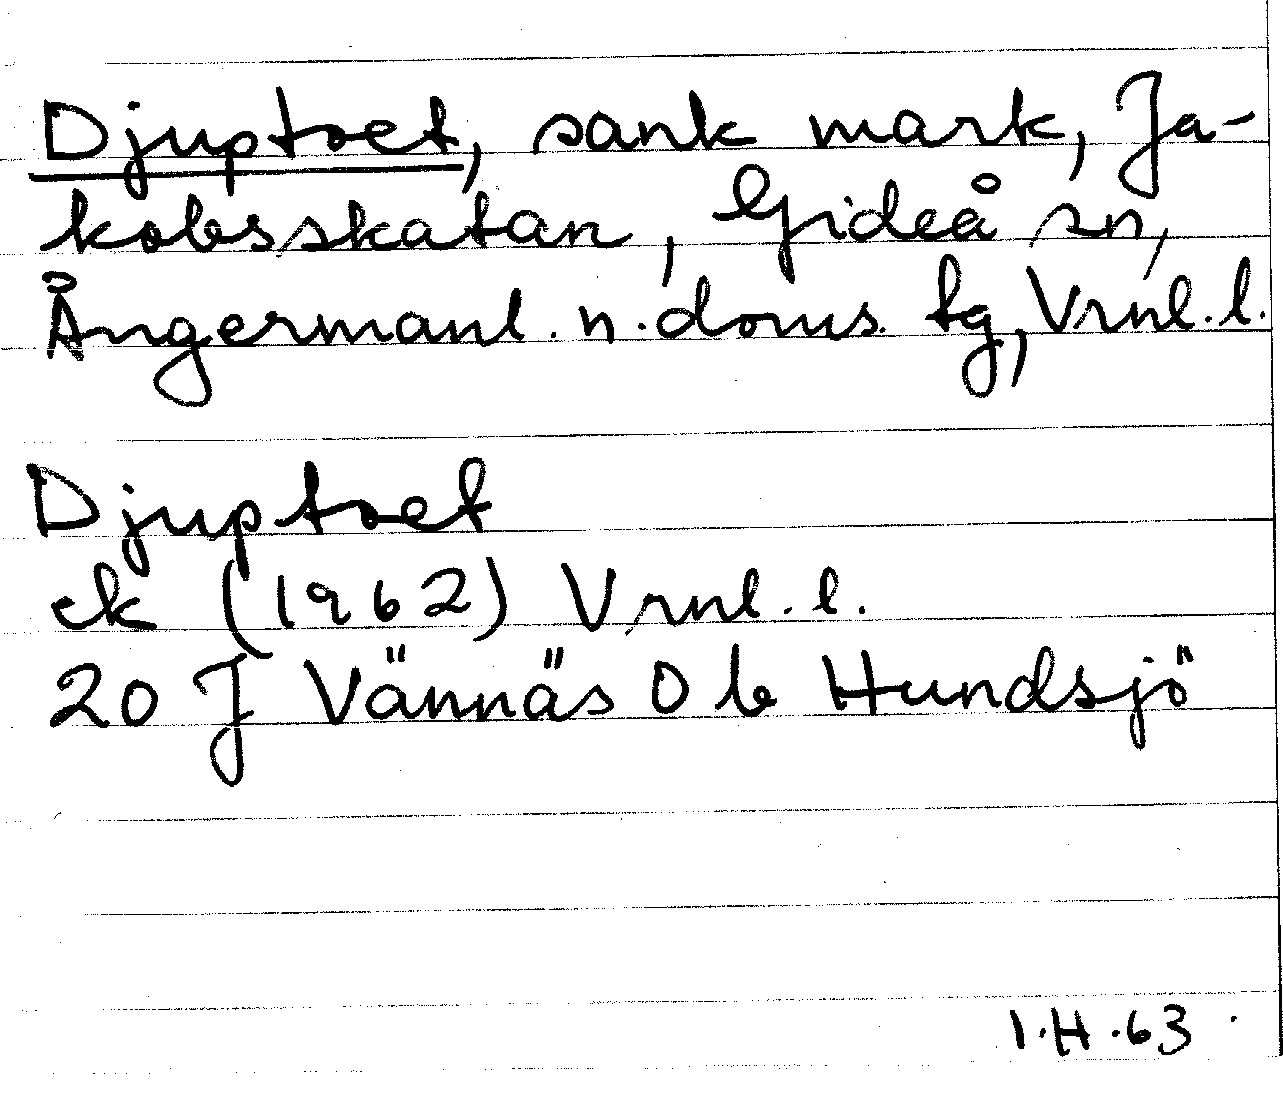 Djuptoet, sank mark, Ja-
kobsskatan, Gideå sn,
Ångermanl. n. doms. tg, Vrnl. l.
Djuptoet
ek (1962) Vrnl. l.
20 J Vännäs 0 b Hundsjö
I.H.63